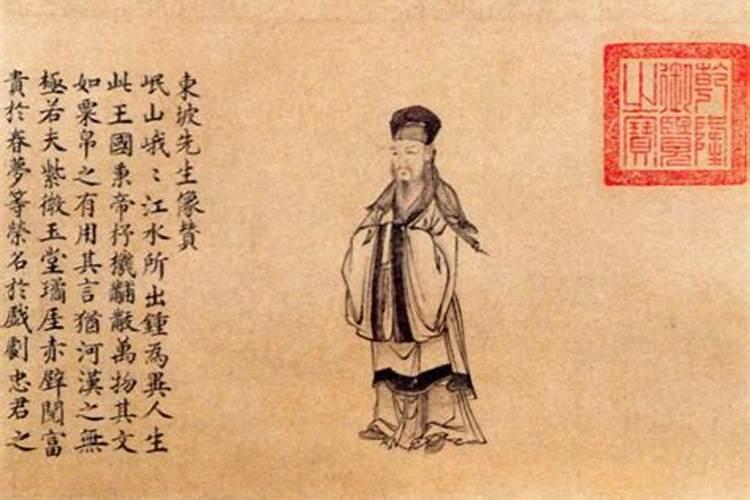 乾隆
御覽
之寶
東坡先生像贊
岷山峨〻江水所出鍾為異人生
此王國秉帝杼機黼黻萬物其文
如粟帛之有用其言猶河漢之無
極若夫紫微玉堂璚厓赤壁閱富
貴於春夢等榮名於戲劇忠君之